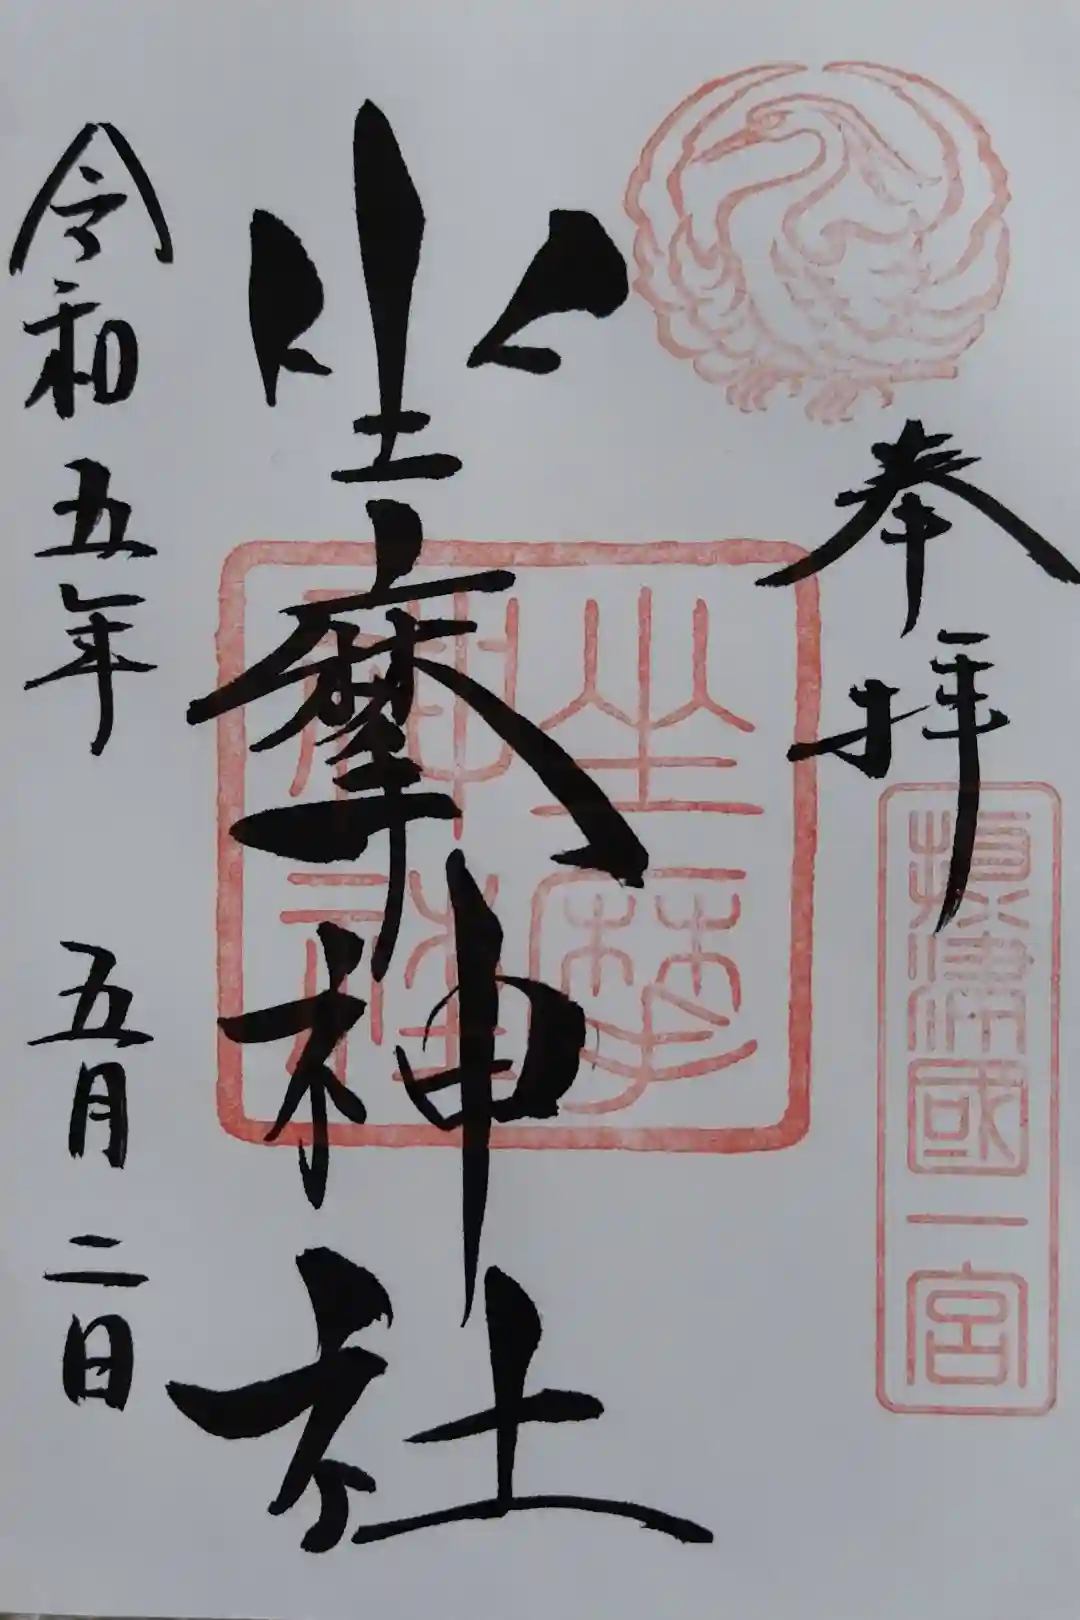 奉拝
攝津國一宮
坐摩神社
坐摩神社
令和五年 五月二日